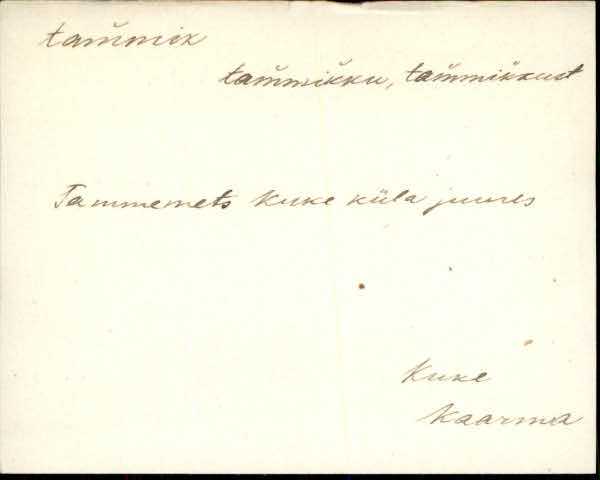 tam̆mik
tam̆mik̆ku, tam̆mik̆kust
Tammemets Kuke küla juures
Kuke
Kaarma